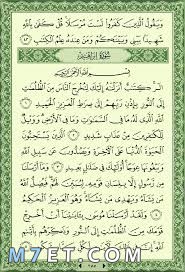 وَيَقُولُ ٱلَّذِينَ كَفَرُوا۟ لَسْتَ مُرْسَلًا قُلْ كَفَىٰ بِٱللَّهِ
شَهِيدًۢا بَيْنِى وَبَيْنَكُمْ وَمَنْ عِندَهُۥ عِلْمُ ٱلْكِتَٰبِ ٤٣
سُورَةُ إِبْرَاهِيمَ
بِسْمِ ٱللَّهِ ٱلرَّحْمَٰنِ ٱلرَّحِيمِ
الٓر كِتَٰبٌ أَنزَلْنَٰهُ إِلَيْكَ لِتُخْرِجَ ٱلنَّاسَ مِنَ ٱلظُّلُمَٰتِ
إِلَى ٱلنُّورِ بِإِذْنِ رَبِّهِمْ إِلَىٰ صِرَٰطِ ٱلْعَزِيزِ ٱلْحَمِيدِ ١
ٱللَّهِ ٱلَّذِى لَهُۥ مَا فِى ٱلسَّمَٰوَٰتِ وَمَا فِى ٱلْأَرْضِ وَوَيْلٌ
لِّلْكَٰفِرِينَ مِنْ عَذَابٍ شَدِيدٍ ٢ ٱلَّذِينَ يَسْتَحِبُّونَ
ٱلْحَيَوٰةَ ٱلدُّنْيَا عَلَى ٱلْءَاخِرَةِ وَيَصُدُّونَ عَن سَبِيلِ ٱللَّهِ
وَيَبْغُونَهَا عِوَجًا أُو۟لَٰٓئِكَ فِى ضَلَٰلٍۭ بَعِيدٍ ٣ وَمَآ أَرْسَلْنَا
مِن رَّسُولٍ إِلَّا بِلِسَانِ قَوْمِهِۦ لِيُبَيِّنَ لَهُمْ فَيُضِلُّ ٱللَّهُ
مَن يَشَآءُ وَيَهْدِى مَن يَشَآءُ وَهُوَ ٱلْعَزِيزُ ٱلْحَكِيمُ ٤
وَلَقَدْ أَرْسَلْنَا مُوسَىٰ بِـَٔايَٰتِنَآ أَنْ أَخْرِجْ قَوْمَكَ مِنَ
ٱلظُّلُمَٰتِ إِلَى ٱلنُّورِ وَذَكِّرْهُم
M7ET.COM